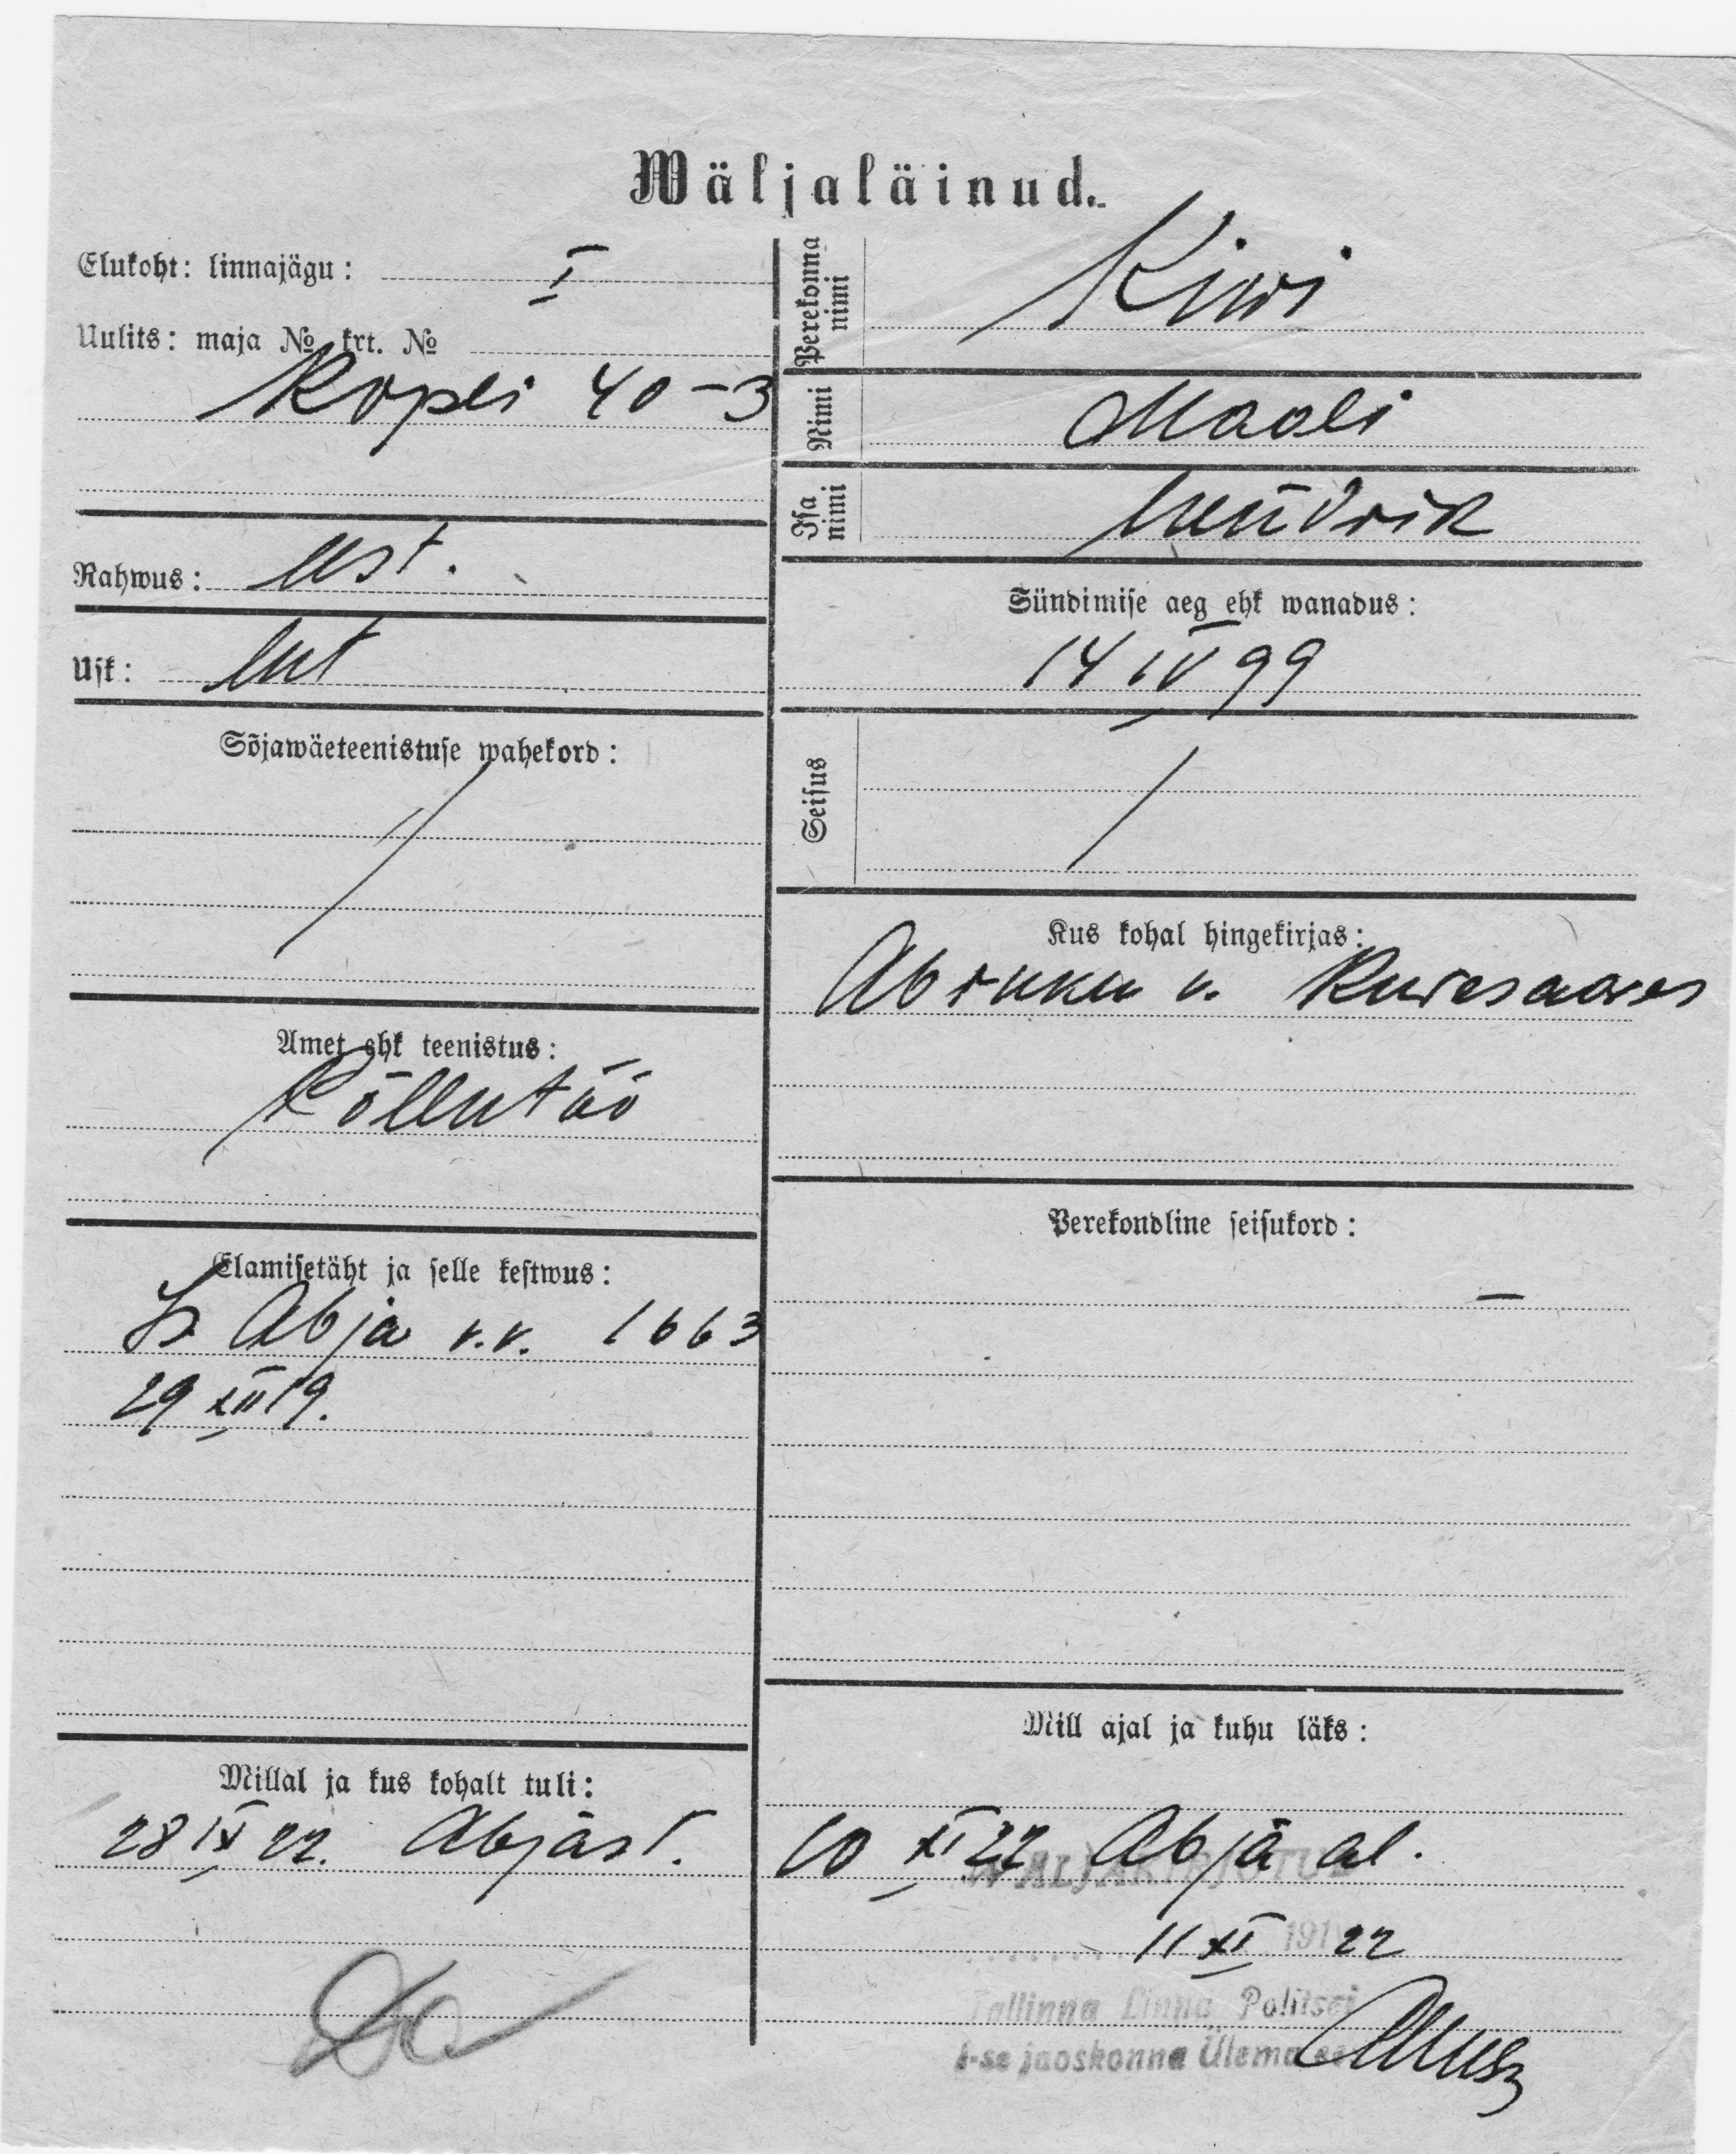 Wäljaläinud.
Elukoht: linnajägu: I
Uulits: maja № krt. №
Kopli 40-3
Rahwus: est.
Usk: lut
Sõjawäeteenistuse wahekord:
/
Amet ehk teenistus:
Põllutöö
Elamisetäht ja selle kestwus:
Abja v.v. 1663
29 XII 19.
Millal ja kus kohalt tuli:
28 IX 22. Abjast.
Perekonna nimi Kiwi
Nimi Maali
Isa nimi Hendrik
Sündimise aeg ehk wanadus:
14 IV 99
Seisus /
Kus kohal hingekirjas:
Abruku v. Kuresaares
Perekondline seisukord:
—
Mill ajal ja kuhu läks:
10 XI 22 Abja al.
WÄLJAKIRJUTUD
11 XI 191 22
Tallinna Linna Politsei
1-se jaoskonna Ülema